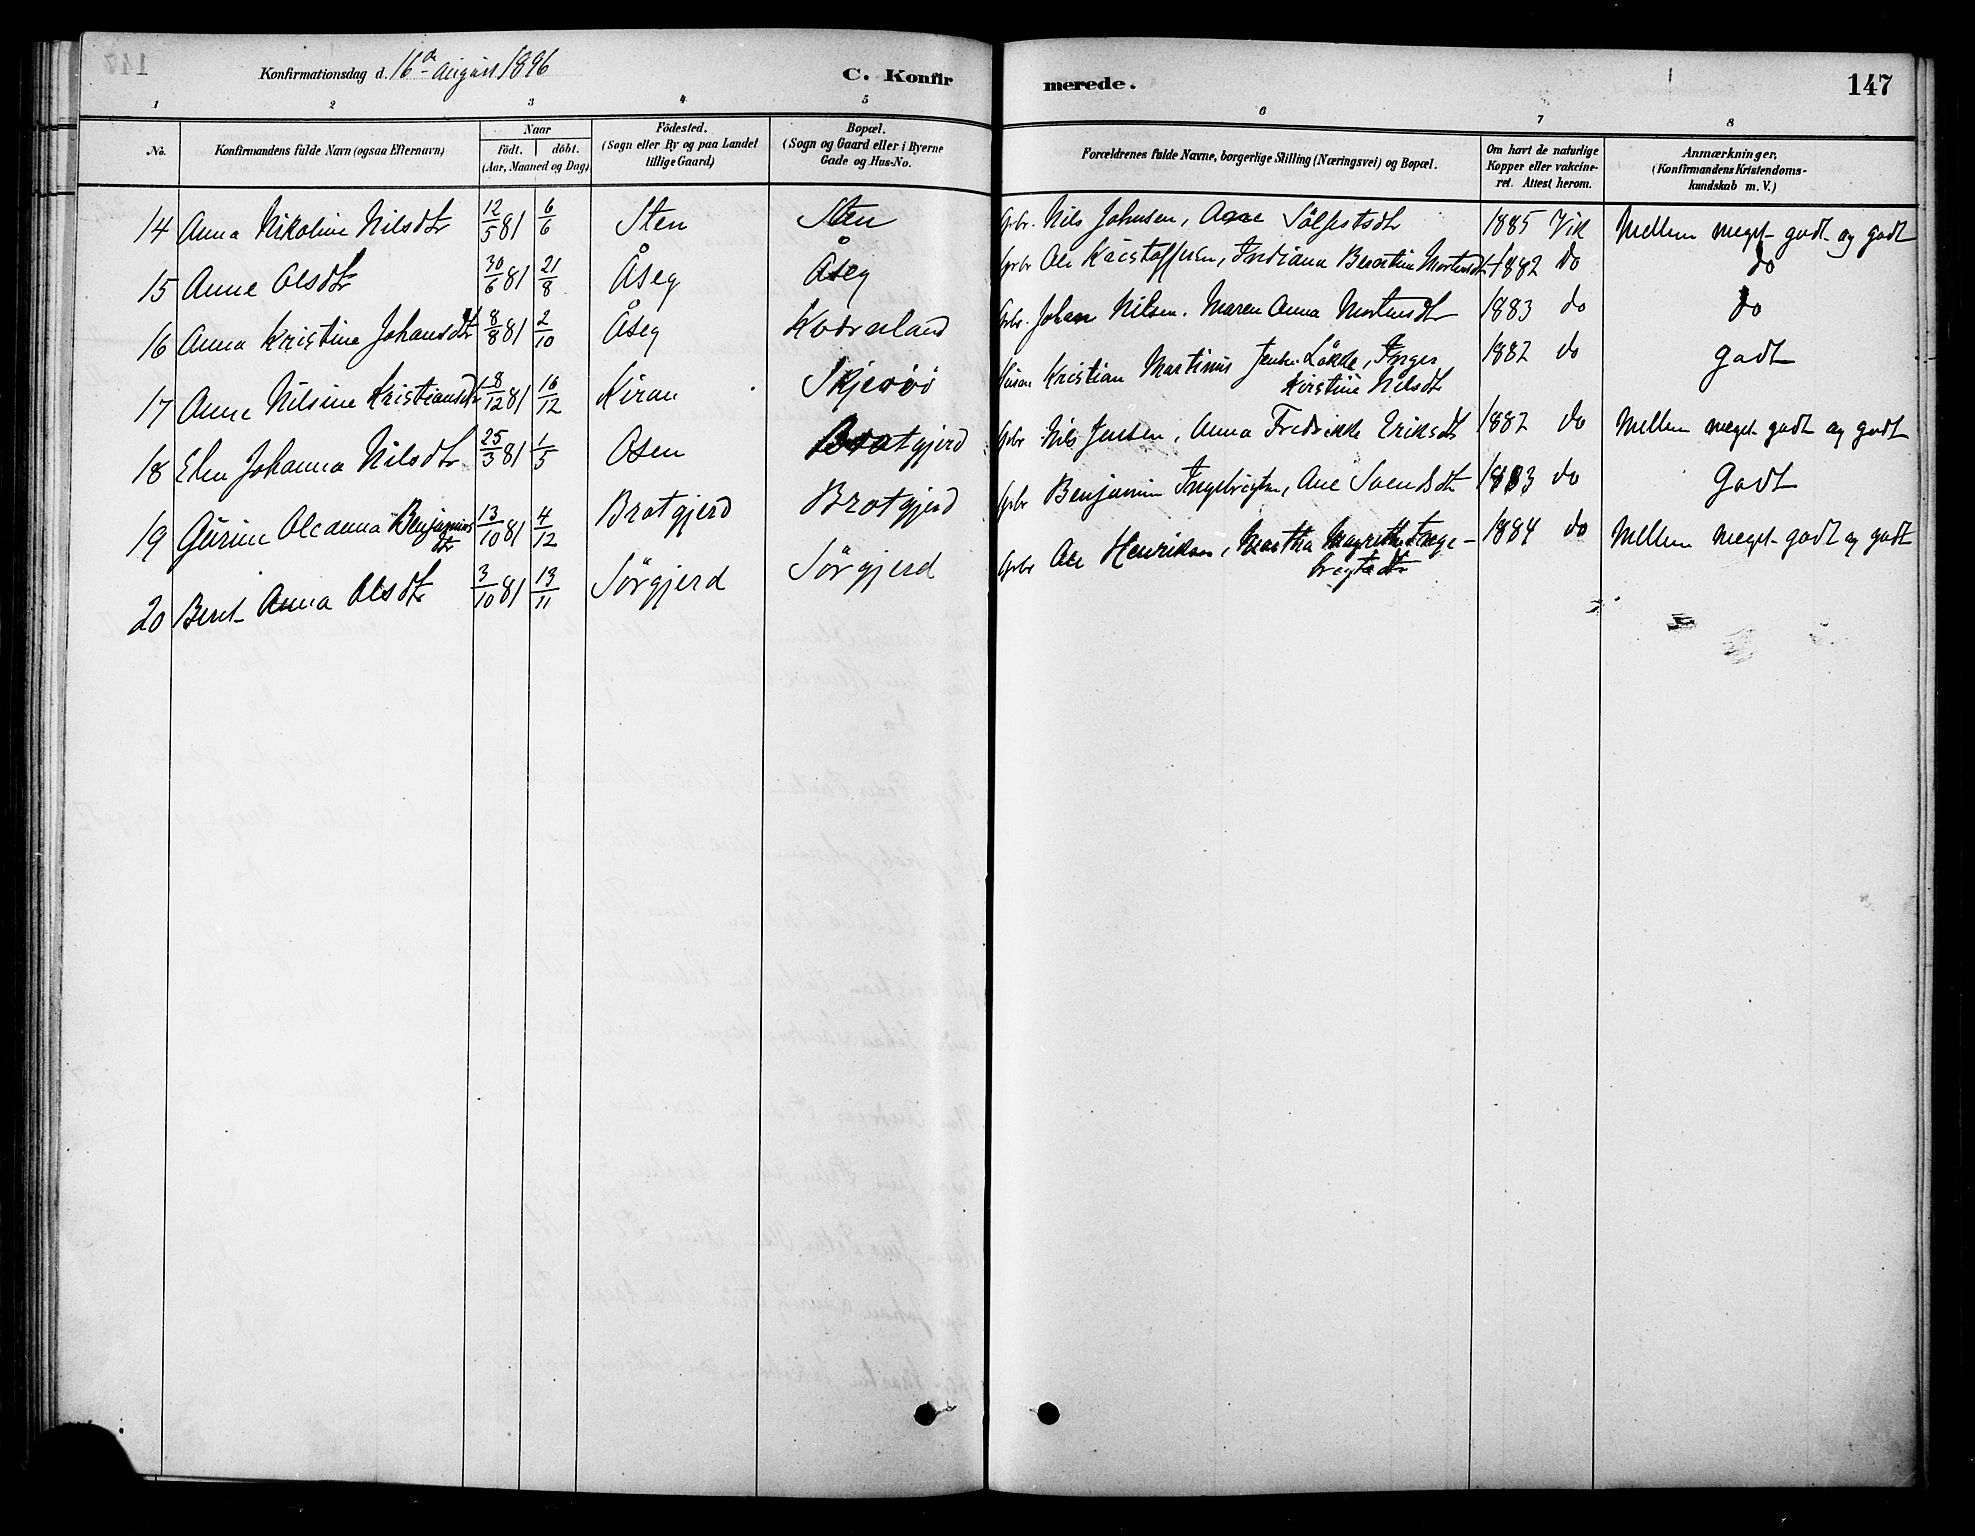 Konfirmationsdag d. 16de August 1896
C. Konfirmerede.
147
1 2 3 4 5 6 7 8
No.
Konfirmandens fulde Navn (ogsaa Efternavn)
Naar
födt. döbt.
(Aar, Maaned og Dag)
Födested.
(Sogn eller By og paa Landet
tillige Gaard)
Bopæl.
(Sogn og Gaard eller i Byerne
Gade og Hus-No.
Forældrenes fulde Navne, borgerlige Stilling (Næringsvei) og Bopæl.
Om havt de naturlige
Kopper eller vakcine-
ret. Attest herom.
Anmærkninger,
(Konfirmandens Kristendoms-
kundskab m. V.)
14 Anna Nikoline Nilsdtr 12/5 81 6/6 Sten Sten Gbr. Nils Johnsen, Ane Sölfestsdtr 1885 Vik Mellem meget godt og godt
15 Anne Olsdtr 30/6 81 21/8 Åseg Åseg Gbr Ole Kristoffersen, Indiana Berntine Mortensdtr 1882 do do
16 Anna Kristine Johansdtr 8/8 81 2/10 Åseg Kvernland Gbr. Johan Nilsen. Maren Anna Mortensdtr 1883 do do
17 Anne Nilsine Kristiansdtr 8/12 81 16/12 Kiran Skjervö Husm Kristian Martinus Jenss. Lökke, Inger
Kirstine Nilsdtr 1882 do Godt
18 Elen Johanna Nilsdtr 25/3 81 1/5 Osen Bratgjerd Gbr Nils Jensen, Anna Fredrikke Eriksdtr 1882 do Mellem meget godt og godt
19 Gurine Oleanna Benjamins
dtr 13/10 81 4/12 Bratgjerd Bratgjerd Gbr Benjamin Ingebrigtsen, Ane Svendsdtr 1883 do Godt
20 Beret Anna Olsdtr 3/10 81 13/11 Sörgjerd Sörgjerd Gbr Ole Henriksen, Martha Margrethe Inge-
brigtsdtr 1884 do Mellem meget godt og godt